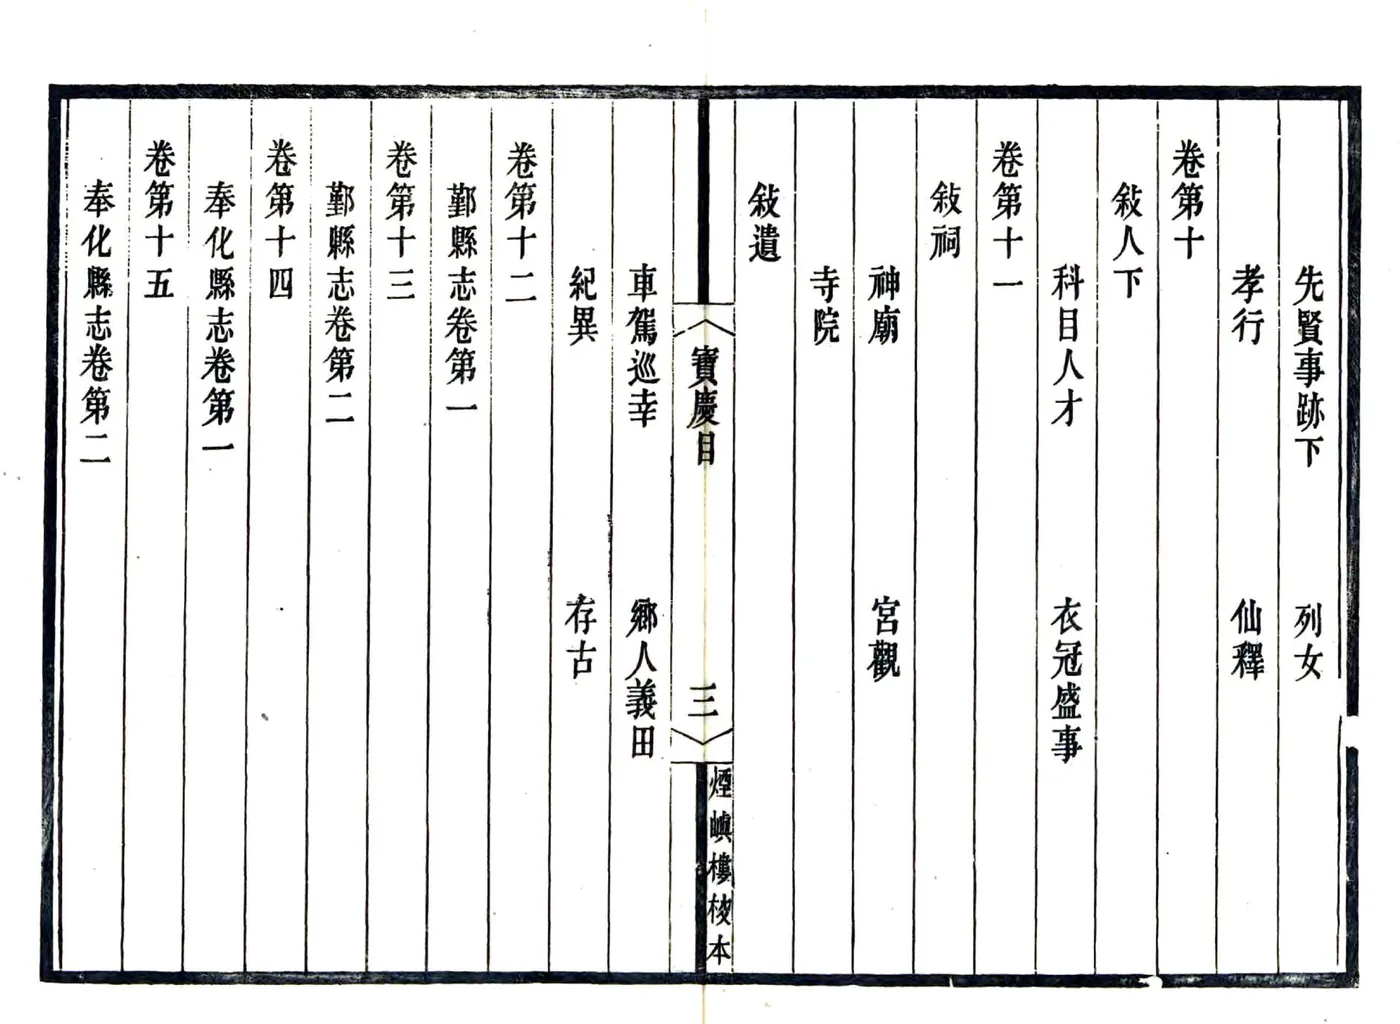 先賢事跡下　列女
孝行　仙釋
卷第十
敍人下
科目人才　衣冠盛事
卷第十一
敍祠
神廟　宮觀
寺院
敍遺
寶慶目　三　煙嶼樓校本
車駕巡幸　鄉人義田
紀異　存古
卷第十二
鄞縣志卷第一
卷第十三
鄞縣志卷第二
卷第十四
奉化縣志卷第一
卷第十五
奉化縣志卷第二